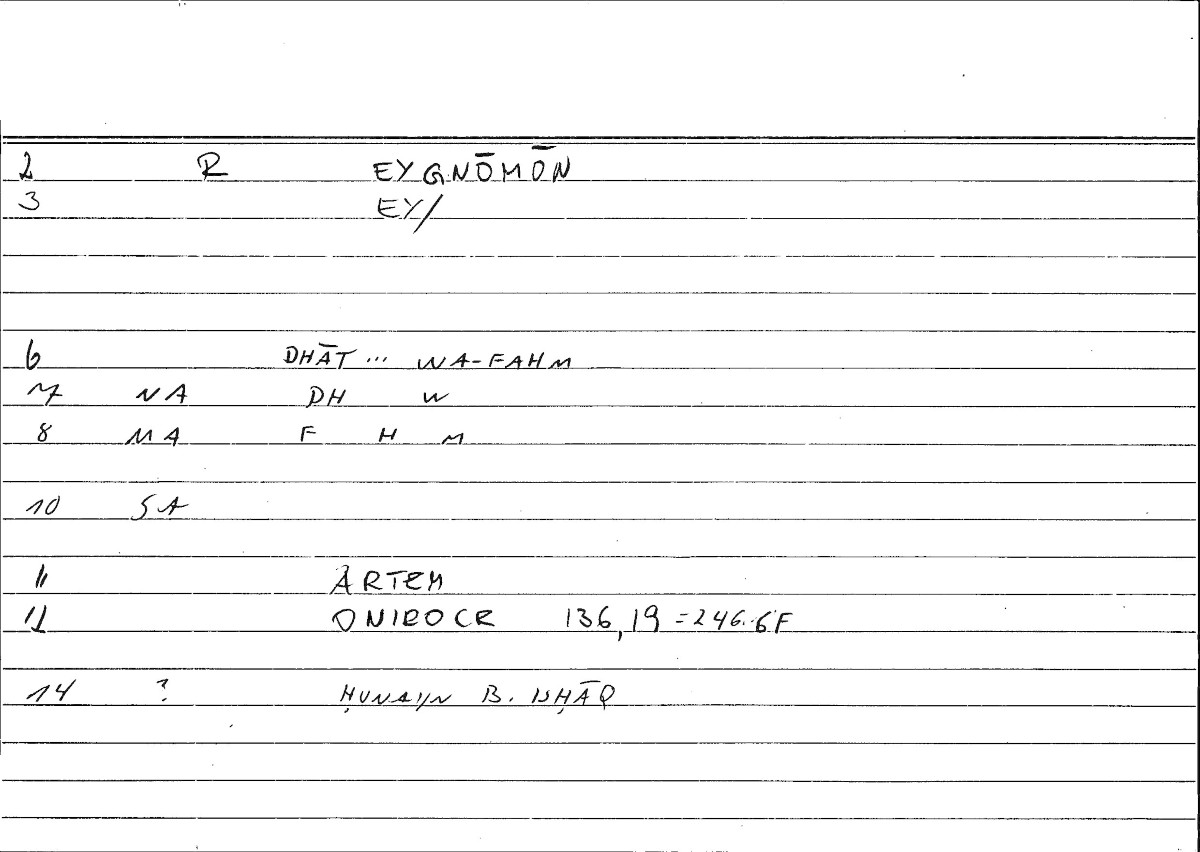 2 R EYGNŌMŌN
3 EY/
6 DHĀT ... WA-FAHM
7 NA DH W
8 MA F H M
10 SA
11 ARTEM
12 ONIROCR 136,19 = 246.6F
14 ? ḤUNAYN B. ISḤĀQ